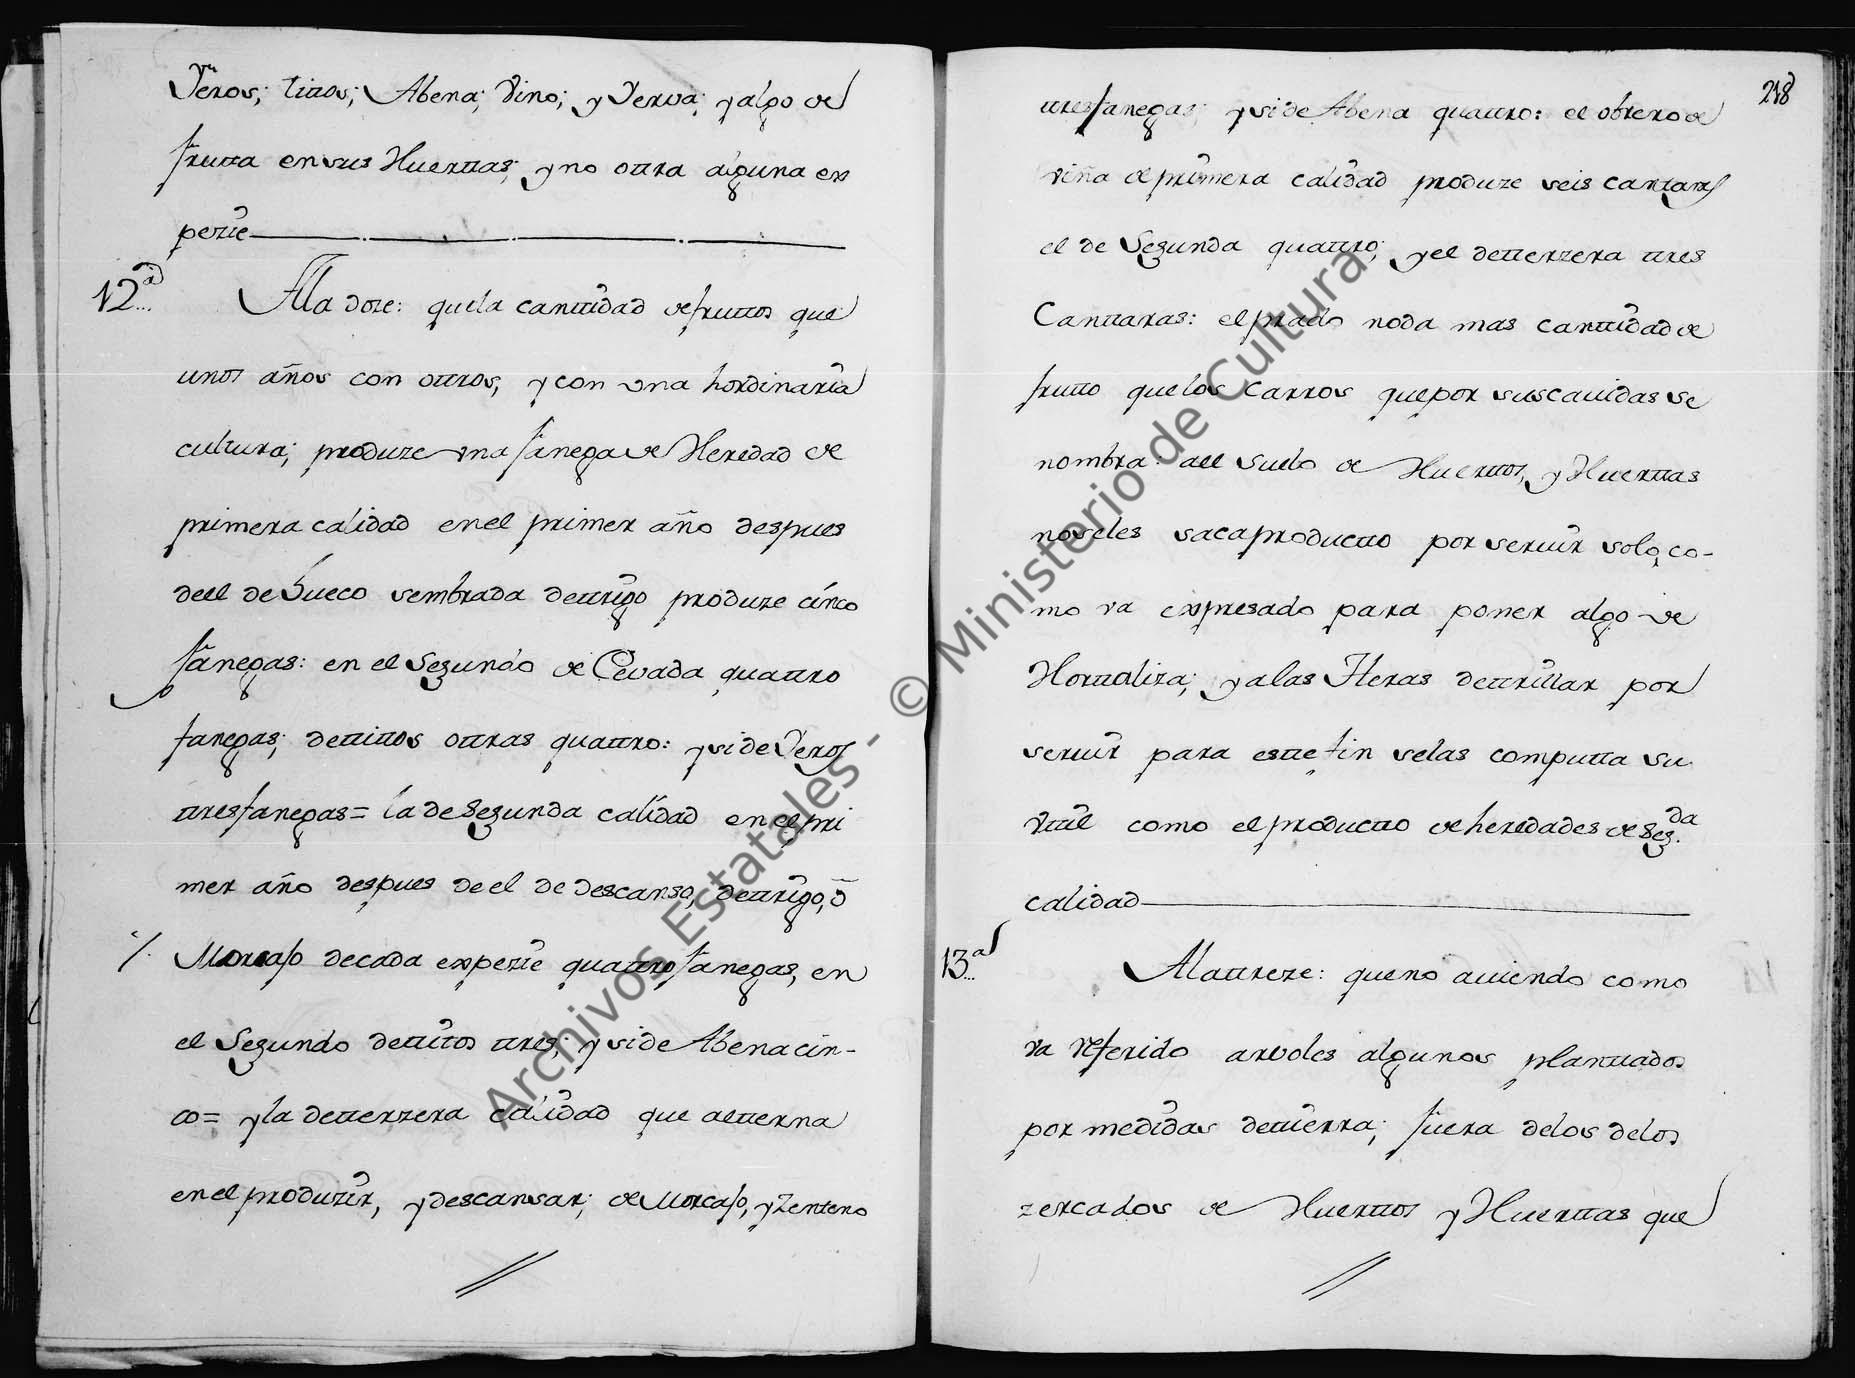 Yeros; tittos; Abena; Vino; y Yerva; y algo de
frutta en sus Huerttas; y no ottra alguna en
perzie
12ª... Ala doze: que la canttidad de fruttos que
unos años con ottros, y con una hordinaria
cultura; produze una fanega de Heredad de
primera calidad en el primer año despues
deel de hueco sembrada de ttrigo produze cinco
fanegas: en el Segundo de Cevada quattro
fanegas; de ttittos ottras quattro: y si de Yeros
ttres fanegas = la de Segunda calidad en el pri
mer año despues de el de descanso, de ttrigo, ô
Morcajo de cada expezie quattro fanegas, en
el Segundo de ttitos ttres; y si de Abena cin-
co = y la de tterzera calidad que altterna
en el produzir, y descansar; de Morcajo, y Zenteno
218
ttres fanegas; y si de Abena quattro: el obrero de
viña de primera calidad produze seis canttaras
el de Segunda quattro; y el de tterzera ttres
Canttaras: el prado no da mas canttidad de
frutto que los Carros que por sus cavidas se
nombra: all suelo de Huerttos, y Huerttas
no seles saca productto por servir solo, co-
mo va expresado para poner algo de
Horttaliza; y a las Heras de ttrillar por
servir para estte fin se las computta su
Uttil como el productto de heredades de Seg.da
calidad
13ª... Ala ttreze: que no aviendo como
va referido arvoles algunos planttados
por medidas de ttierra; fuera de los de los
zercados de Huerttos y Huerttas que
Archivos Estatales - © Ministerio de Cultura